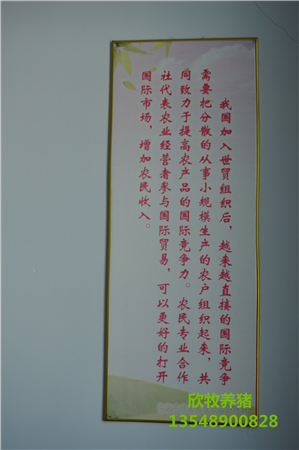 我国加入世贸组织后，越来越直接的国际竞争
需要把分散的从事小规模生产的农户组织起来，共
同致力于提高农产品的国际竞争力。农民专业合作
社代表农业经营者参与国际贸易，可以更好的打开
国际市场，增加农民收入。
欣牧养猪
13548900828